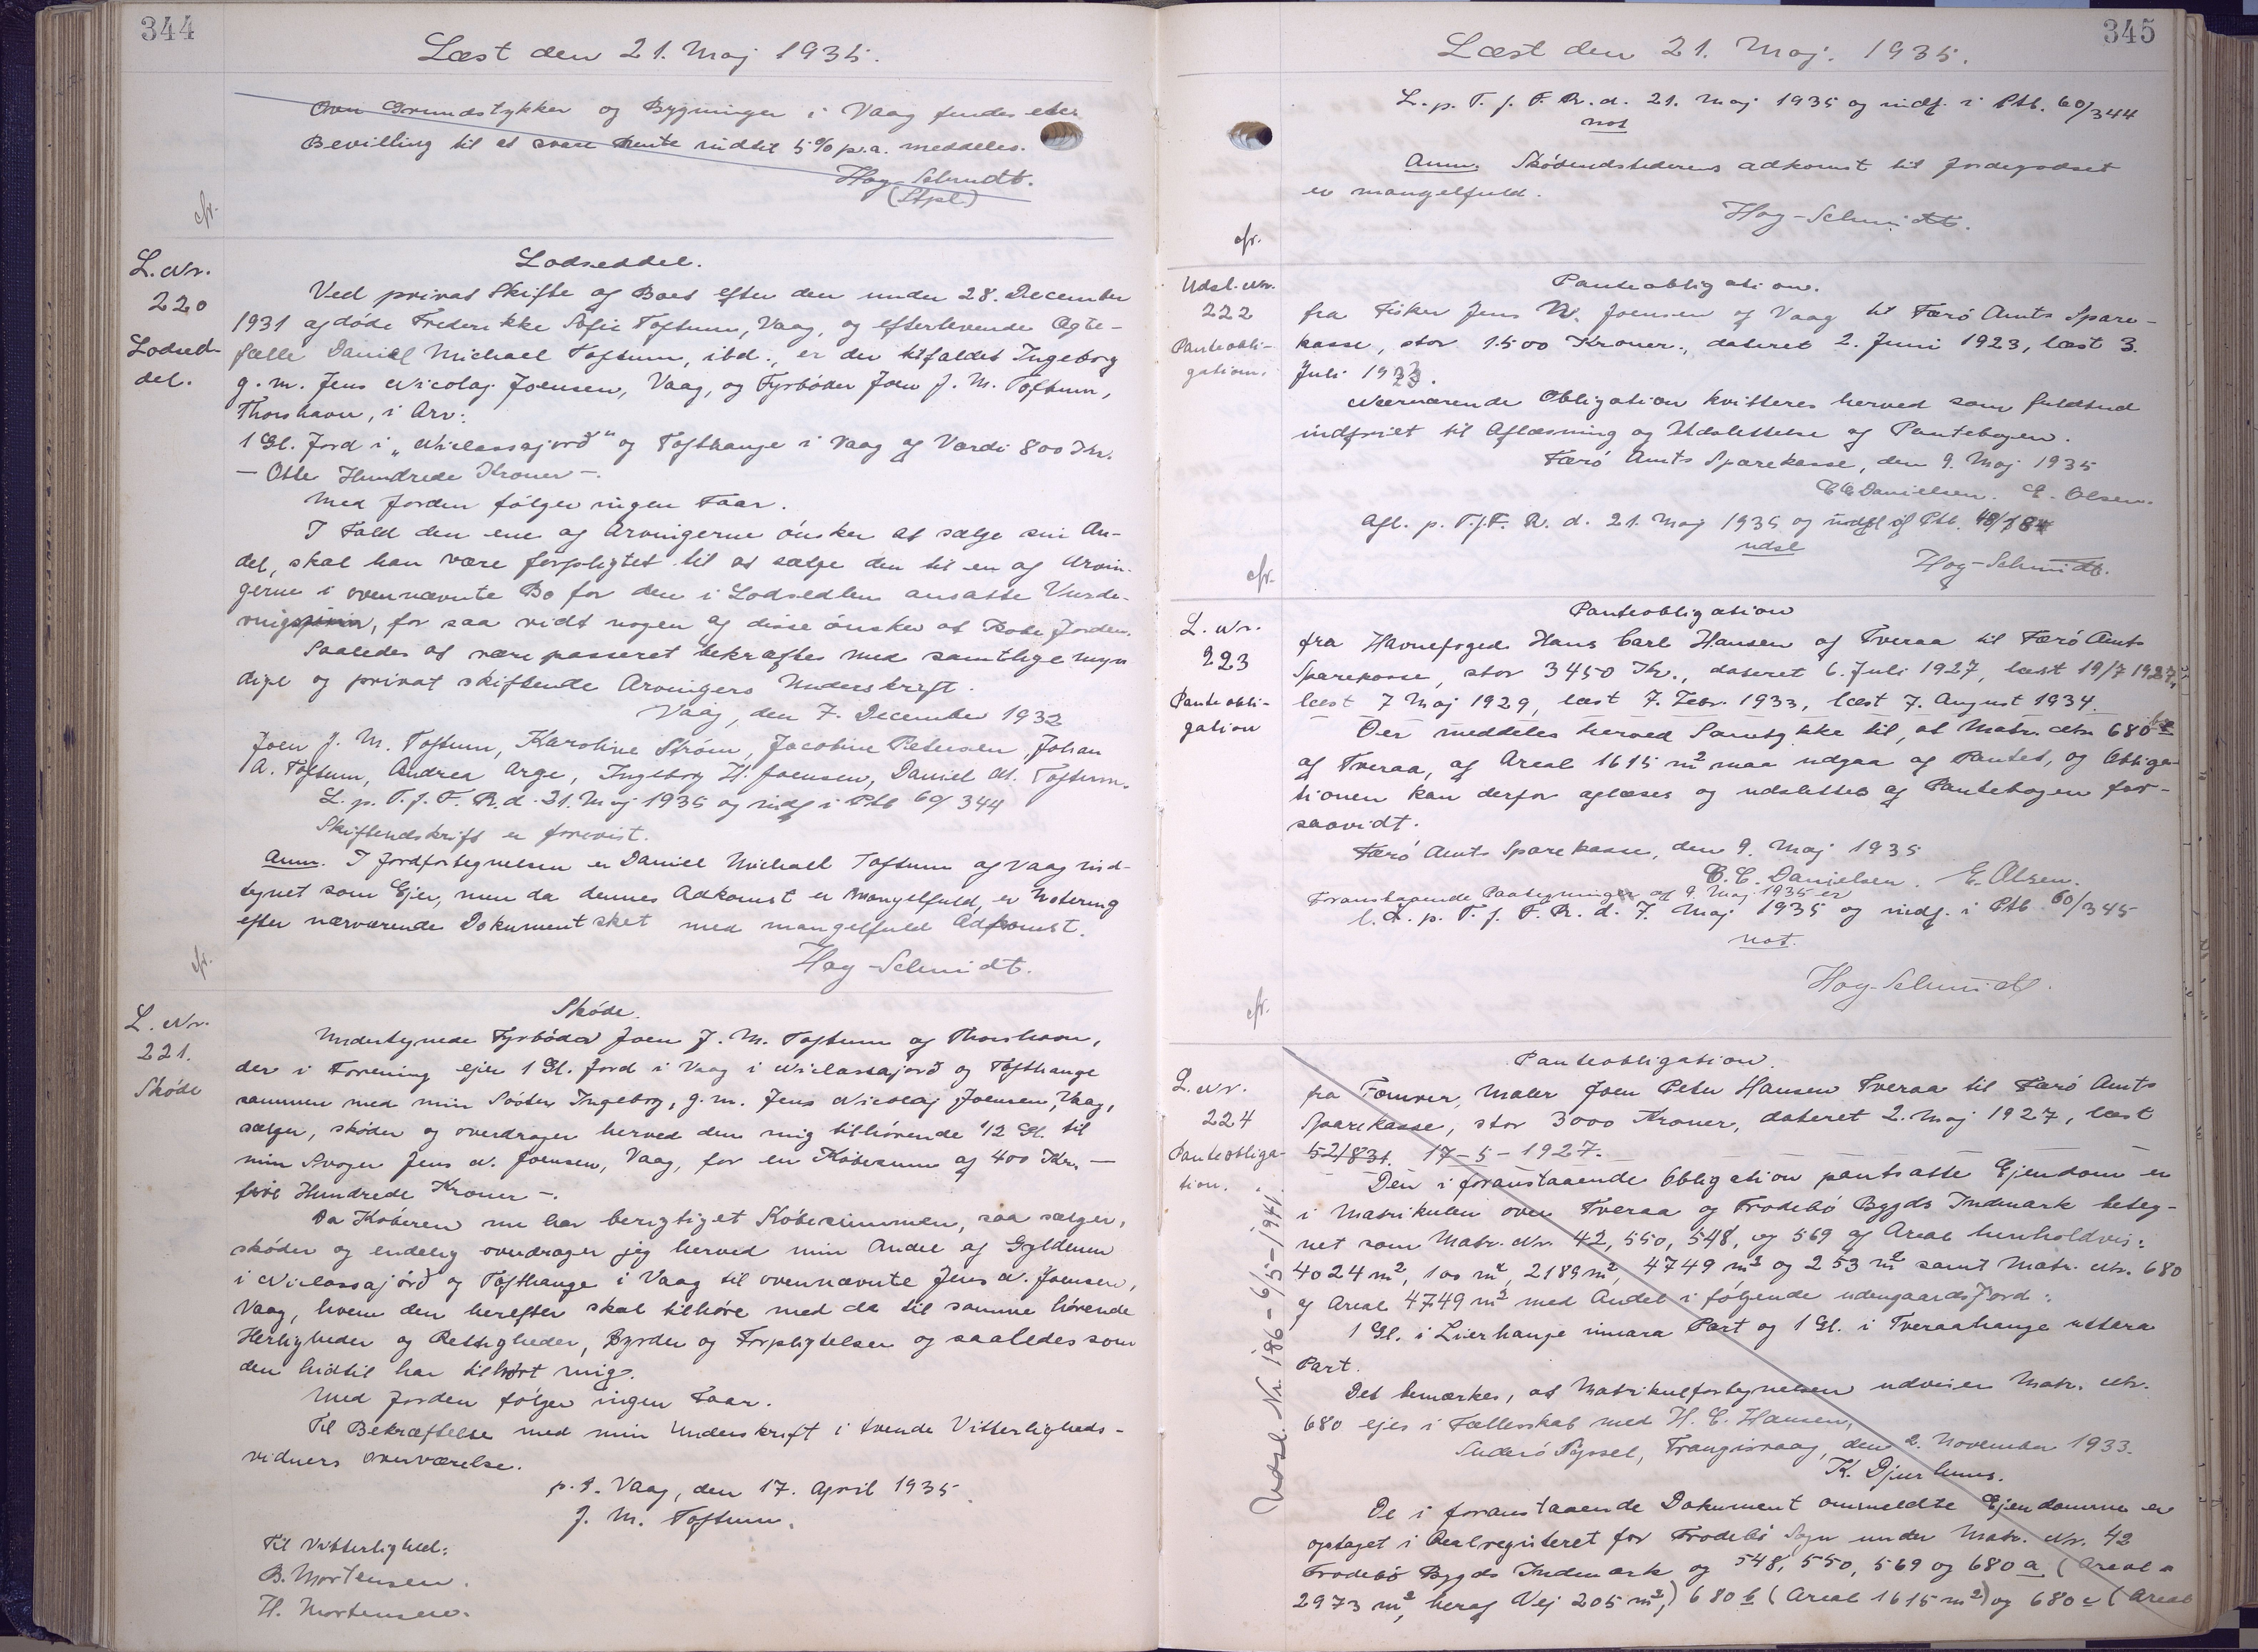 344
Læst den 21. Maj 1935.
Over Grundstykker og Bygninger i Vaag findes eller
Bevilling til at svare Rente indtil 5% p.a. meddeles.
Høg-Schmidt.
(Stpl.)
cfr.
L. Nr.
220
Lodsed-
del.
Lodseddel.
Ved privat Skifte af Boet efter den under 28. December
1931 afdøde Frederikke Sofie Toftum, Vaag, og efterlevende Ægte-
fælle Daniel Michael Toftum, ibd., er der tilfaldet Ingeborg
g. m. Jens Nicolaj Joensen, Vaag, og Fyrbøder Joen J. M. Toftum,
Thorshavn, i Arv:
1 Gl. Jord i „Niclassajørð" og Tofthauge i Vaag af Værdi 800 Kr.
— Otte Hundrede Kroner —.
Med Jorden følger ingen Faar.
I Fald den ene af Arvingerne ønsker at sælge sin An-
del, skal han være forpligtet til at sælge den til en af Arvin-
gerne i ovennævnte Bo for den i Lodsedlen ansatte Vurde-
ring, for saa vidt nogen af disse ønsker at købe Jorden.
Saaledes at være passeret bekræftes med samtlige myn
dige og privat skiftende Arvingers Underskrift.
Vaag, den 7. December 1932
Joen J. M. Toftum, Karoline Strøm, Jacobine Petersen, Johan
A. Toftum, Andrea Arge, Ingeborg H. Joensen, Daniel M. Toftum.
L. p. T. f. F. R. d. 21. Maj 1935 og indf i Ptb 60/344
Skiftendskrift er forevist.
Anm. I Jordfortegnelsen er Daniel Michael Toftum af Vaag ind-
tegnet som Ejer, men da dennes Adkomst er mangelfuld, er Notering
efter nærværende Dokument sket med mangelfuld Adkomst.
Høg-Schmidt.
cfr.
L. Nr.
221.
Skøde
Skøde.
Undertegnede Fyrbøder Joen J. M. Toftum af Thorshavn,
der i Forening ejer 1 Gl. Jord i Vaag i Niclassajørð og Tofthauge
sammen med min Søster Ingeborg, g. m. Jens Nicolaj Joensen, Vaag,
sælger, skøder og overdrager herved den mig tilhørende 1/2 Gl. til
min Svoger Jens N. Joensen, Vaag, for en Købesum af 400 Kr. —
fire Hundrede Kroner —.
Da Køberen nu har berigtiget Købesummen, saa sælger,
skøder og endelig overdrager jeg herved min Andel af Gyldenen
i Niclassajørð og Tofthauge i Vaag til ovennævnte Jens N. Joensen,
Vaag, hvem den herefter skal tilhøre med de til samme hørende
Herligheder og Rettigheder, Byrder og Forpligtelser og saaledes som
den hidtil har tilhørt mig.
Med Jorden følger ingen Faar.
Til Bekræftelse med min Underskrift i tvende Vitterligheds-
vidners Overværelse.
p. t. Vaag, den 17. April 1935.
J. M. Toftum.
Til Vitterlighed:
B. Mortensen.
H. Mortensen.
345
Læst den 21. Maj. 1935.
L. p. T. f. F. R. d. 21. Maj 1935 og indf. i Ptb. 60/344
not
Anm. Skødeudstederens adkomst til Jordegodset
er mangelfuld.
Høg-Schmidt.
cfr.
Udsl. Nr.
222
Panteobli-
gation.
Panteobligation.
fra Fisker Jens N. Joensen af Vaag til Færø Amts Spare-
kasse, stor 1500 Kroner., dateret 2. Juni 1923, læst 3.
Juli 1923.
Nærværende Obligation kvitteres herved som fuldtud
indfriet til Aflæsning og Udslettelse af Pantebogen.
Færø Amts Sparekasse, den 9. Maj 1935
C C Danielsen. E. Olsen.
Afl. p. T. f. F. R. d. 21. Maj 1935 og af Ptb. 48/184
udsl
Høg-Schmidt.
cfr.
L. Nr.
223
Panteobli-
gation
Panteobligation
fra Havnefoged Hans Carl Hansen af Tveraa til Færø Amts
Sparekasse, stor 3450 Kr., dateret 6. Juli 1927, læst 19/7 1927,
læst 7 Maj 1929, læst 7. Febr. 1933, læst 7. August 1934.
Der meddeles herved Samtykke til, at Matr. Nr. 680 b
af Tveraa, af Areal 1615 m² maa udgaa af Pantet, og Obliga-
tionen kan derfor aflæses og udslettes af Pantebogen for-
saavidt.
Færø Amts Sparekasse, den 9. Maj 1935
C. C. Danielsen. E. Olsen.
Foranstaaende Paategninger af 9 Maj 1935 er
l. p. T. f. F. R. d. 7. Maj 1935 og indf. i Ptb 60/345
not.
Høg-Schmidt.
cfr.
L. Nr.
224
Panteobliga-
tion.
Udsl. Nr. 186 - 6/5 - 1941.
Panteobligation.
fra Tømrer, Maler Joen Peter Hansen Tveraa til Færø Amts
Sparekasse, stor 3000 Kroner, dateret 2. Maj 1927, læst
52/831. 17-5-1927.
Den i foranstaaende Obligation pantsatte Ejendom er
i Matrikulen over Tveraa og Frodebø Bygds Indmark beteg-
net som Matr. Nr. 42, 550, 548, og 569 af Areal henholdvis:
4024 m², 100 m², 2189 m², 4749 m² og 253 m² samt Matr. Nr. 680
af Areal 4749 m² med Andel i følgende udengaardsJord:
1 Gl. i Lierhauge innara Part og 1 Gl. i Tveraahauge uttara
Part.
Det bemærkes, at Matrikulfortegnelsen udviser Matr. Nr.
680 ejes i Fællesskab med H. C. Hansen,
Suderø Syssel, Trangisvaag, den 2. November 1933.
K. Djurhuus.
De i foranstaaende Dokument ommeldte Ejendomme er
optaget i Realregisteret for Frodebø Sogn under Matr. Nr. 42
Frodebø Bygds Indmark og 548, 550, 569 og 680 a (Areal
2973 m², heraf Vej 205 m²,) 680 b (Areal 1615 m²) og 680 c (Areal